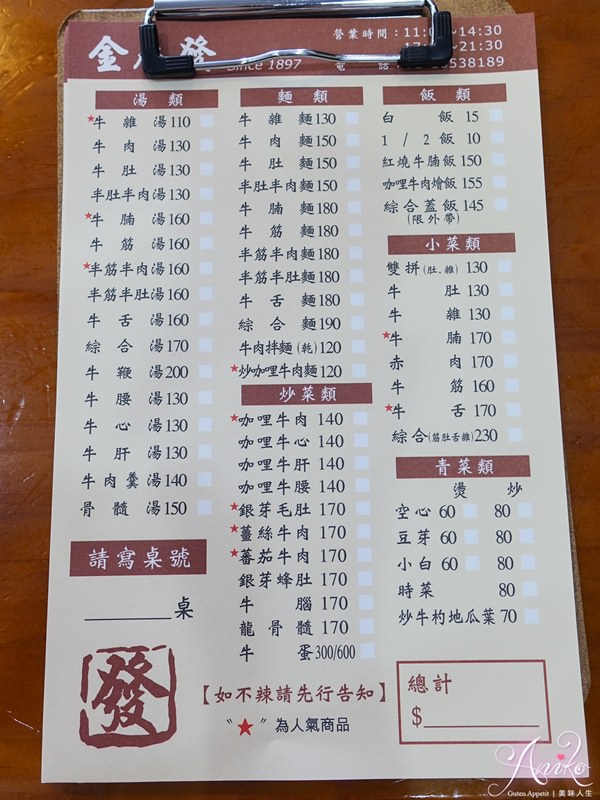 金 發
Since 1897
營業時間：11:0 ~14:30
~21:30
電 話 538189
湯類
★牛雜湯110
牛肉湯130
牛肚湯130
半肚半肉湯130
★牛腩湯160
牛筋湯160
★半筋半肉湯160
半筋半肚湯160
牛舌湯160
綜合湯170
牛鞭湯200
牛腰湯130
牛心湯130
牛肝湯130
牛肉羹湯140
骨髓湯150
請寫桌號
桌
發
麵類
牛雜麵130
牛肉麵150
牛肚麵150
半肚半肉麵150
牛腩麵180
牛筋麵180
半筋半肉麵180
半筋半肚麵180
牛舌麵180
綜合麵190
牛肉拌麵(乾)120
★炒咖哩牛肉麵120
炒菜類
★咖哩牛肉 140
咖哩牛心 140
咖哩牛肝 140
咖哩牛腰 140
★銀芽毛肚 170
★薑絲牛肉 170
★蕃茄牛肉 170
銀芽蜂肚 170
牛腦 170
龍骨髓 170
牛蛋 300/600
飯類
白飯 15
1/2飯 10
紅燒牛腩飯 150
咖哩牛肉燴飯 155
綜合蓋飯 145
(限外帶)
小菜類
雙拼(肚.雜) 130
牛肚 130
牛雜 130
★牛腩 170
赤肉 170
牛筋 160
★牛舌 170
綜合(筋肚舌雜)230
青菜類
燙 炒
空心 60 80
豆芽 60 80
小白 60 80
時菜 80
炒牛杓地瓜葉 70
【如不辣請先行告知】
〝★〞為人氣商品
總計
$
Aniko
Guten Appetit | 美味人生